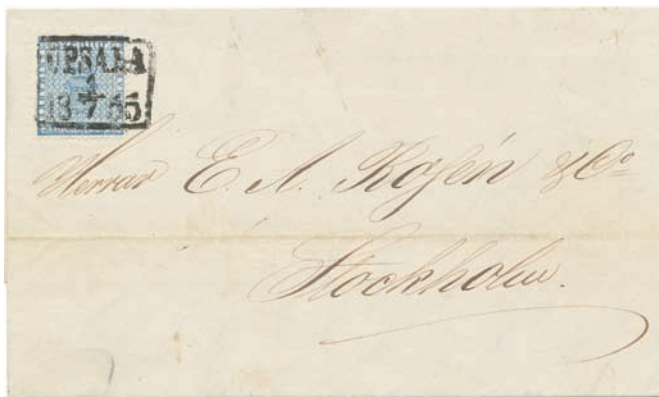 UPSALA
1
18 7 55
Herrar E. A. Rosén & Co
Stockholm.